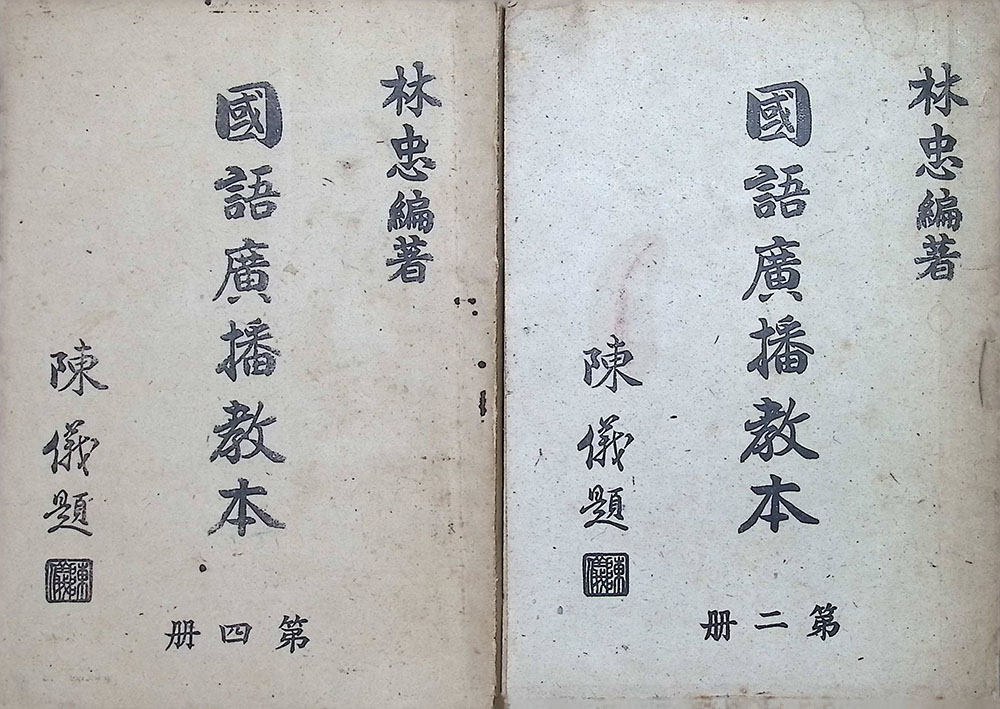 林忠編著
國語廣播教本
陳儀題
陳儀
第二册
林忠編著
國語廣播教本
陳儀題
陳儀
第四册